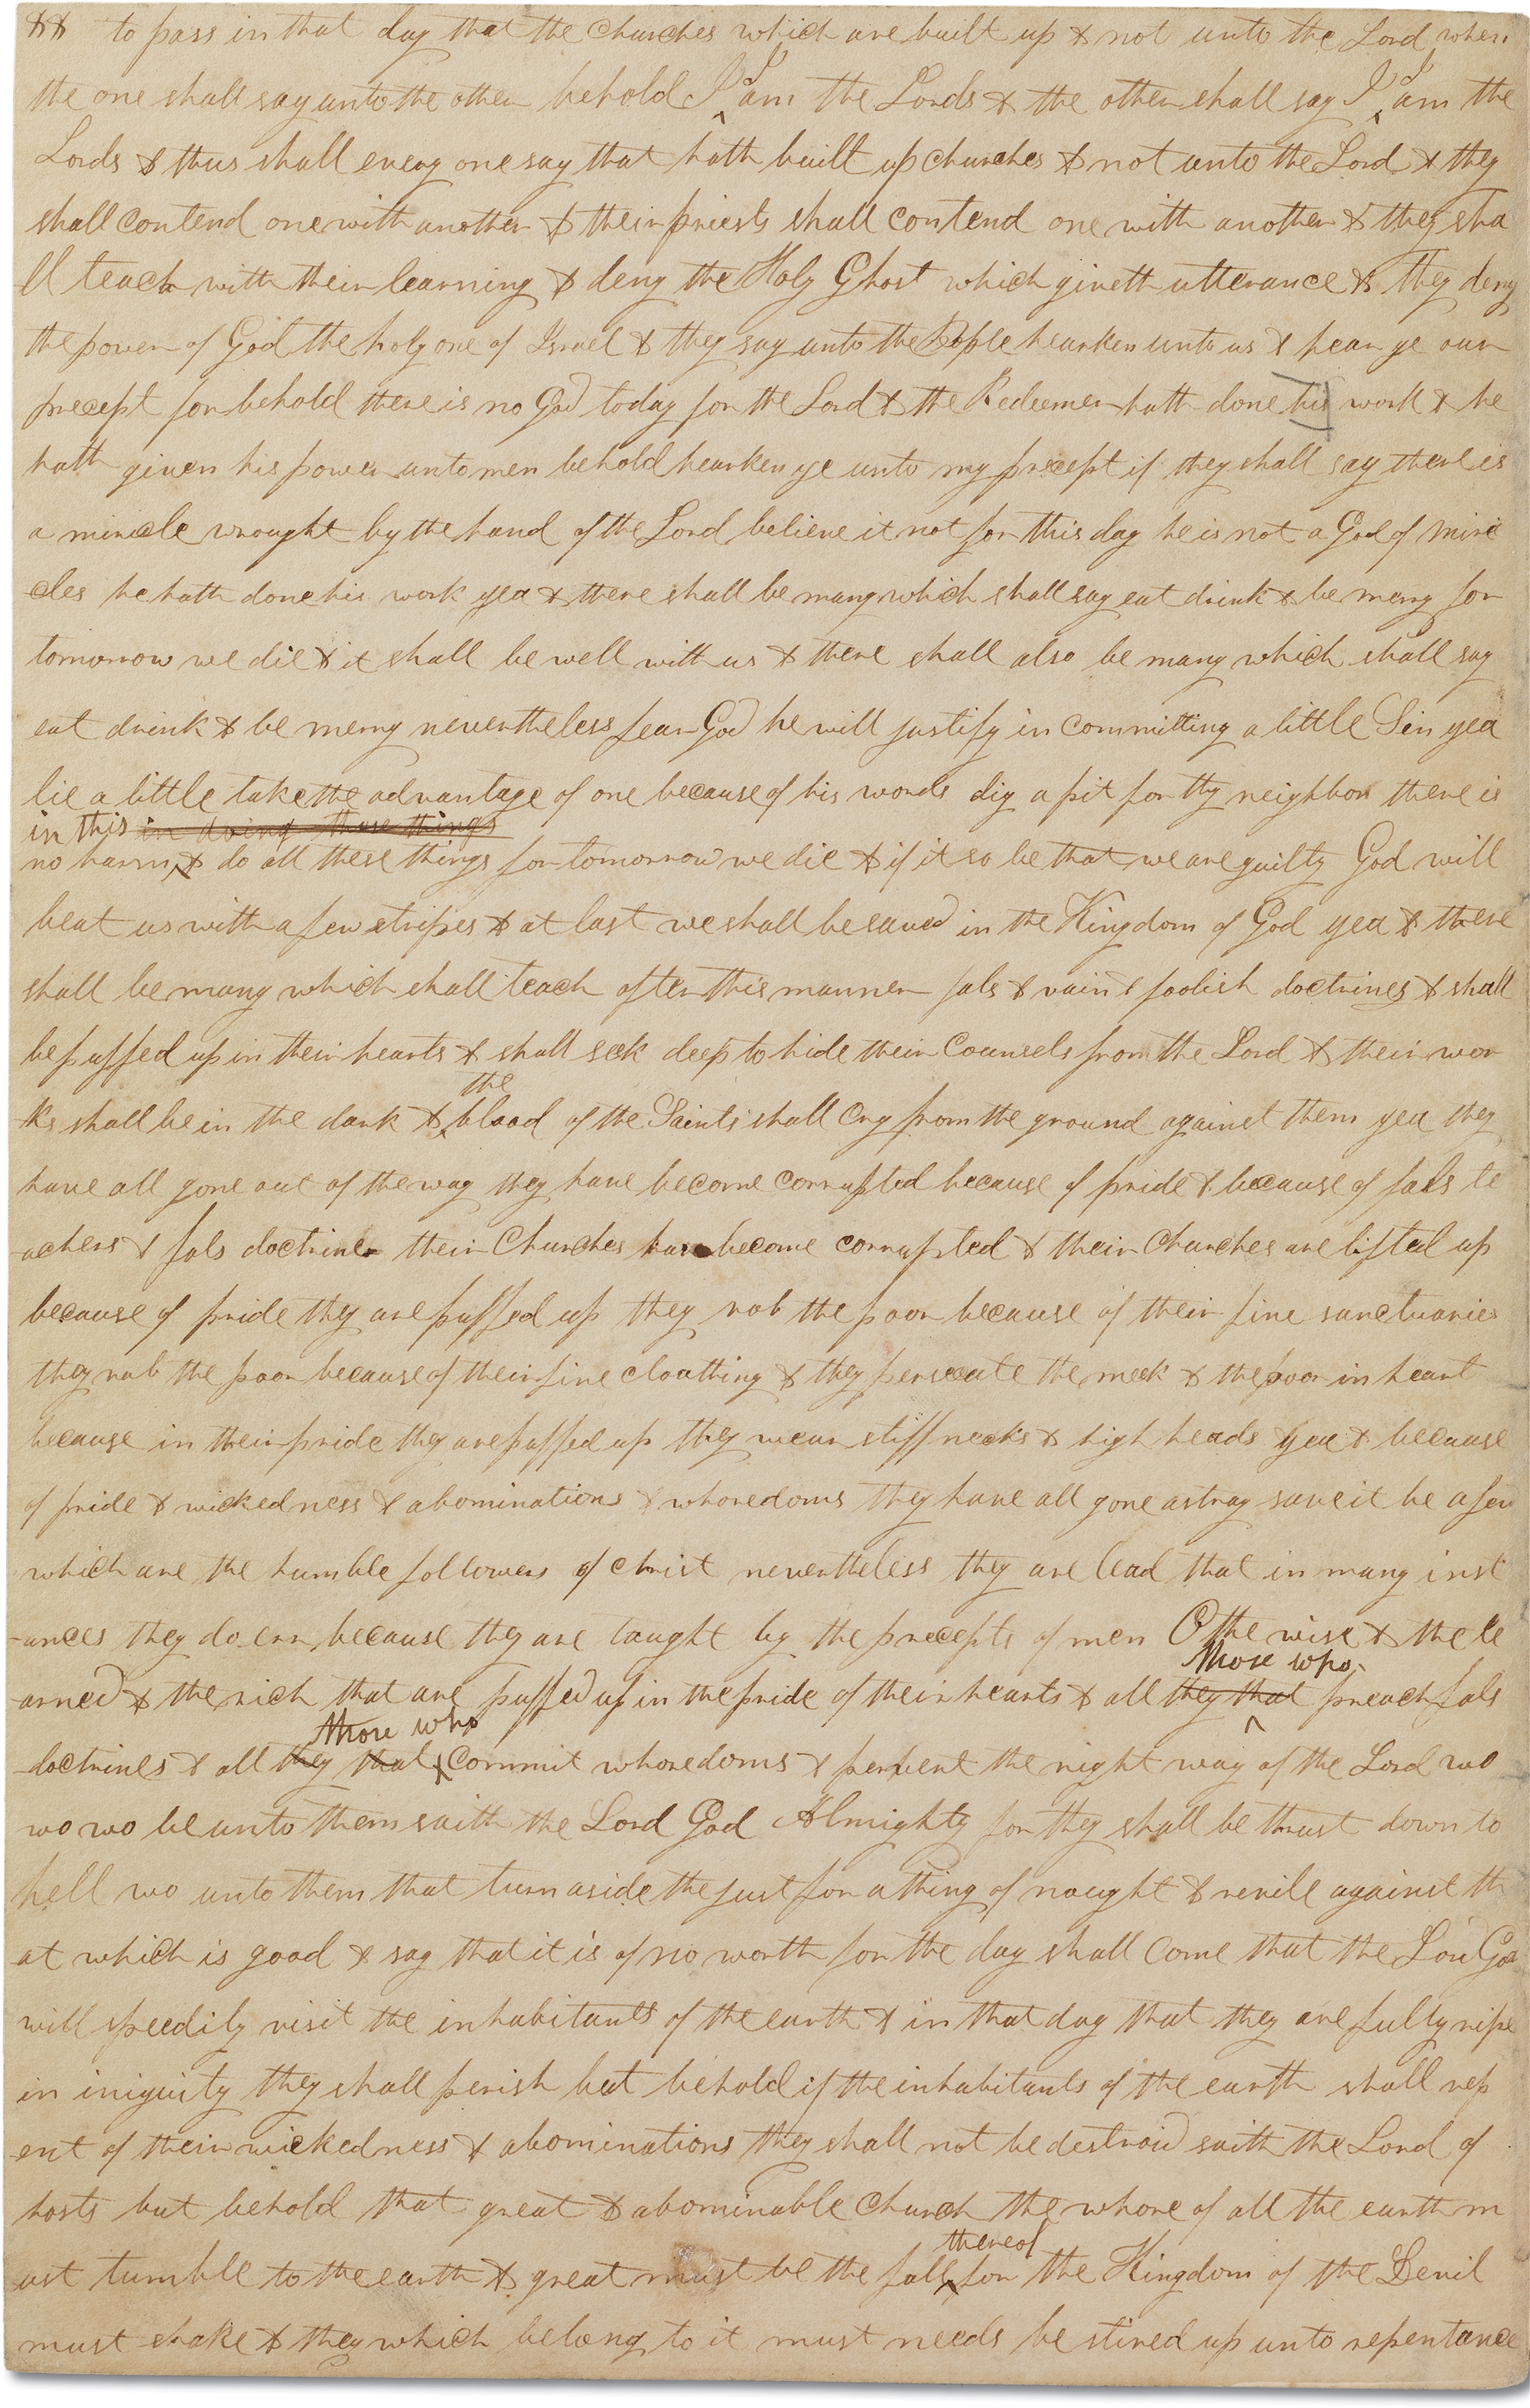 to pass in that day that the churches which are built up & not unto the Lord when
the one shall say unto the other behold I I am the Lords & the other shall say I I am the
Lords & thus shall every one say that hath built up churches & not unto the Lord & they
shall contend one with another & their priests shall contend one with another & they sha
ll teach with their learning & deny the Holy Ghost which giveth utterance & they deny
the power of God the holy one of Israel & they say unto the People hearken unto us & hear ye our
precept for behold there is no God today for the Lord & the Redeemer hath done his work & he
hath given his power unto men behold hearken ye unto my precept if they shall say there is
a miricle wrought by the hand of the Lord believe it not for this day he is not a God of miri
cles he hath done his work yea & there shall be many which shall say eat drink & be merry for
tomorrow we die & it shall be well with us & there shall also be many which shall say
eat drink & be merry nevertheless fear God he will justify in committing a little Sin yea
lie a little take the advantage of one because of his words dig a pit for thy neighbor there is
in this in doing these things
no harm & do all these things for tomorrow we die & if it so be that we are guilty God will
beat us with a few stripes & at last we shall be saved in the Kingdom of God yea & there
shall be many which shall teach after this manner fals & vain & foolish doctrines & shall
be puffed up in their hearts & shall seek deep to hide their counsels from the Lord & their wor
the
ks shall be in the dark & blood of the Saints shall cry from the ground against them yea they
have all gone out of the way they have become corrupted because of pride & because of fals te
achers & fals doctrine their Churches have become corrupted & their Churches are lifted up
because of pride they are puffed up they rob the poor because of their fine sanctuaries
they rob the poor because of their fine cloathing & they persecute the meek & the poor in heart
because in their pride they are puffed up they wear stiff necks & high heads yea & because
of pride & wickedness & abominations & whoredoms they have all gone astray save it be a few
which are the humble followers of christ nevertheless they are lead that in many inst
ances they do err because they are taught by the precepts of men O the wise & the le
those who
arned & the rich that are puffed up in the pride of their hearts & all they that preach fals
those who
doctrines & all they that commit whoredoms & pervert the right way of the Lord wo
wo wo be unto them saith the Lord God Almighty for they shall be thrust down to
hell wo unto them that turn aside the just for a thing of nought & revile against th
at which is good & say that it is of no worth for the day shall come that the Lord God
will speedily visit the inhabitants of the earth & in that day that they are fully ripe
in iniquity they shall perish but behold if the inhabitants of the earth shall rep
ent of their wickedness & abominations they shall not be destroid saith the Lord of
hosts but behold that great & abominable church the whore of all the earth m
thereof
ust tumble to the earth & great must be the fall for the Kingdom of the Devil
must shake & they which belong to it must needs be stired up unto repentance